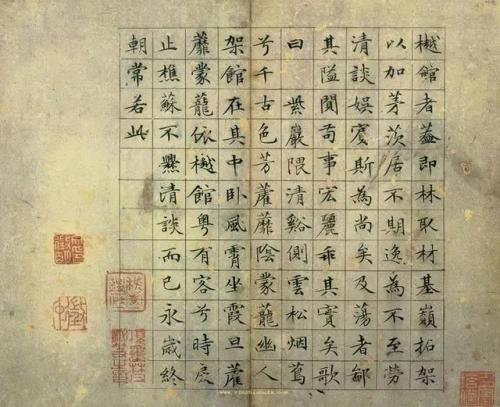 樾館者蓋即林取材基嶺拓架
以加茅茨居不期逸為不至勞
清談娛賓斯為尚矣及蕩者鄙
其隘闃苟事宏麗乖其實矣歌
曰 紫巖隈清谿側雲松烟蔦
兮千古色芳藿蘼陰蒙蘢幽人
架館在其中臥風霄坐霞旦藿
蘼蒙蘢依樾館粵有客兮時戾
止樵蘇不爨清談而已永歲終
朝常若此